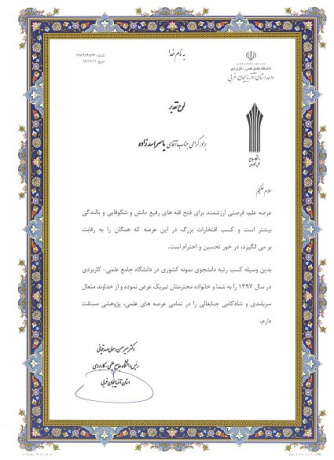 به نام خدا
دانشگاه جامع علمی - کاربردی
واحد استان آذربایجان غربی
لوح تقدیر
برادر گرامی جناب آقای یاسر اسدزاده
سلام علیکم
عرصه علم، فرصتی ارزشمند برای فتح قله های رفیع دانش و شکوفایی و بالندگی
بیشتر است و کسب افتخارات بزرگ در این عرصه که همگان را به رقابت
بر می انگیزد، در خور تحسین و احترام است.
بدین وسیله کسب رتبه دانشجوی نمونه کشوری در دانشگاه جامع علمی- کاربردی
در سال ۱۳۹۷ را به شما و خانواده محترمتان تبریک عرض نموده و از خداوند متعال
سربلندی و شادکامی جنابعالی را در تمامی عرصه های علمی، پژوهشی مسئلت
دارم.
رئیس دانشگاه جامع علمی - کاربردی
استان آذربایجان غربی